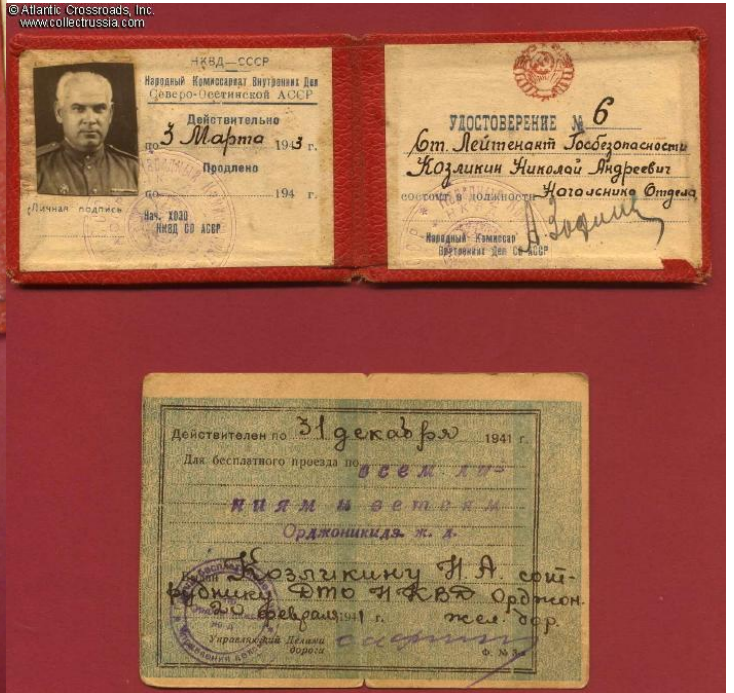 © Atlantic Crossroads, Inc.
www.collectrussia.com
НКВД—СССР
Народный Комиссариат Внутренних Дел
Северо-Осетинской АССР
Действительно
по 3 Марта 1943 г.
Продлено
по 194 г.
Личная подпись
Нач. ХОЗО
НКВД СО АССР
УДОСТОВЕРЕНИЕ № 6
Ст. Лейтенант Госбезопасности
Козликин Николай Андреевич
состоит в должности Начальника Отдела
Народный Комиссар
Внутренних Дел СО АССР
Действителен по 31 декабря 1941 г.
Для бесплатного проезда по всем ли-
ниям и веткам
Орджоникидз. ж. д.
Выдан Козликину Н. А. сот-
руднику ДТО НКВД Орджон.
20 февраля 1941 г. жел. дор.
Управляющий Делами
дороги
Ф. №